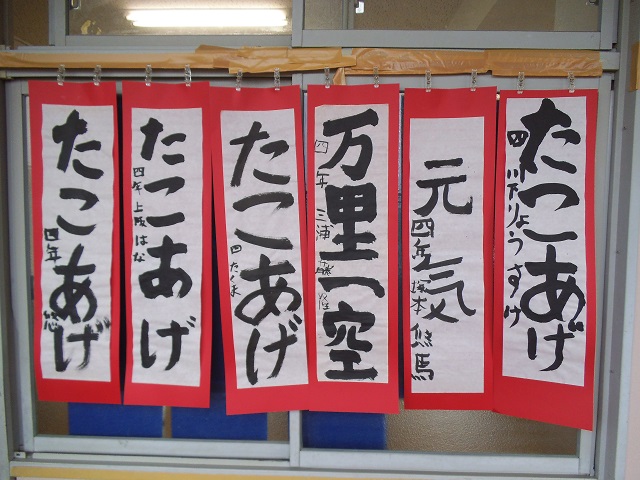 たこあげ
四 川下りょうすけ
元気
四年 塚本 悠馬
万里一空
四年 三浦
たこあげ
四 たくま
たこあげ
四年 上阪はな
たこあげ
四年 悠